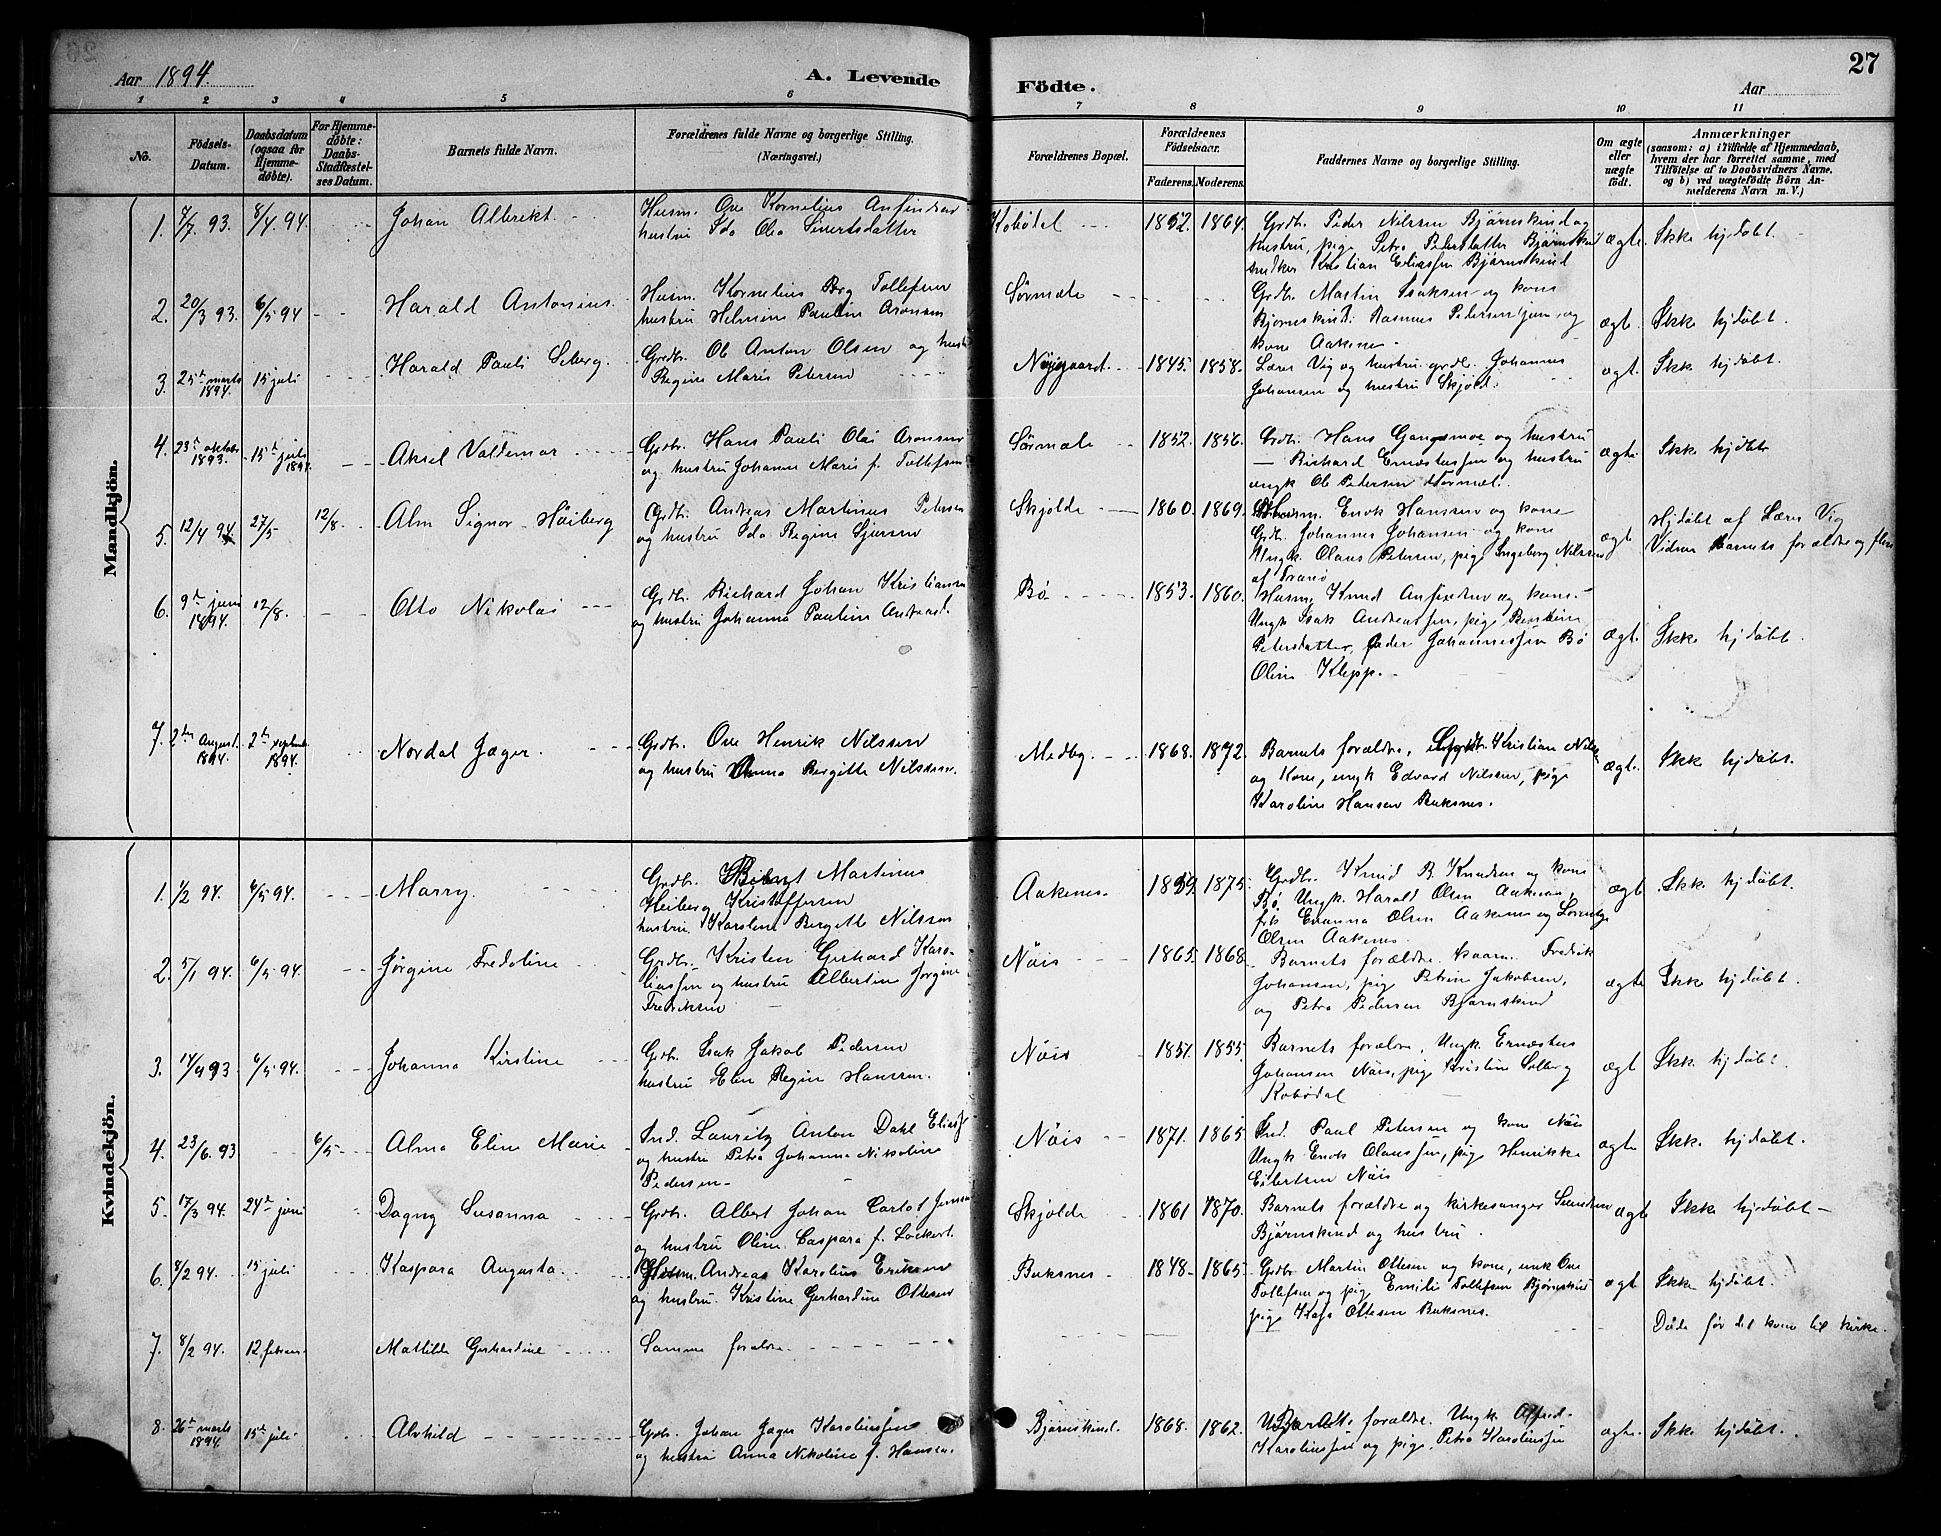 Aar 1894. A. Levende Födte. Aar 27
1 2 3 4 5 6 7 8 9 10 11
No. Födsels-Datum. Daabsdatum (ogsaa for Hjemmedöbte). For Hjemmedöbte: Daabs-Stadfæstelses Datum. Barnets fulde Navn. Forældrenes fulde Navne og borgerlige Stilling. (Næringsvei.) Forældrenes Bopæl. Forældrenes Födselsaar. Faderens. Moderens. Faddernes Navne og borgerlige Stilling. Om ægte eller uægte födt. Anmærkninger (saasom: a) i Tilfælde af Hjemmedaab, hvem der har forrettet samme, med Tilföielse af to Daabsvidners Navne, og b) ved uægtefödte Börn Anmelderens Navn m. V.)
Mandkjön.
1. 7/7 93. 8/4 94. Johan Albrikt Husm. Ove Kornelius Anfindsen
hustru Ida Olea Sivertsdatter
Kobødal 1852. 1864. Grdb. Peder Nilssen Bjørnskind og
hustru, pige Petra Pedersdatter Bjørnskind
Kristian Eliassen Bjørnskind
ægte. Ikke hjdøbt.
2. 20/3 93. 6/5 94 Harald Antonius. Husm. Kornelius Berg Tollefsen
hustru Helmine Pauline Aronsen
Sørmæle Grdb. Martin Isaksen og kone
Bjørneskind. Rasmus Petersen og
kone Aakenes
ægte. Ikke hjdøbt.
3. 25de marts 1894. 15 juli Harald Pauli Seberg. Grdb. Ole Anton Olsen og hustru
Regine Marie Petersen
Nøisgaard 1845. 1858. Lærer Vig og hustru grdb. Johannes
Johansen og hustru Skjold.
ægt. Ikke hjdøbt.
4. 23de oktober 1893. 15de juli 1894 Aksel Valdemar Grdb. Hans Pauli Olai Aronsen
og hustru Johanna Marie f. Tollefsen
Sørmæle 1852. 1856. Grdb. Hans Gangsmoe og hustru
Rickard Ernæstussen og hustru
ungk Ole Petersen Sørmæl.
ægte Ikke hjdøbt
5. 12/4 94 27/5 12/8. Alm Signor Høiberg Grdb. Andreas Martinus Petersen
og hustru Ida Regine Sjursen
Skjolde 1860 1869. Husm. Enok Hanssen og kone
Grdb. Johannes Johansen og kone
Ungk. Olaus Petersen, pige Ingeborg Nilssen
af Tranø
ægt Hjdøbt af Lærer Vig
Vidner Barnets forældre og flere
6. 9de juni 1894. 12/8. Otto Nikolai Grdb. Rickard Johan Kristiansen
og hustru Johanna Pauline Andreas.
Bø 1853. 1860. Husm. Knud Anfindsen og kone
Ungk Isak Andreassen, pige Bentine
Petersdatter, Peder Johannessen Bø
Oline Klepp.
ægt. Ikke hjdøbt.
7. 2den August. 1894. 2den septembr 1894. Nordal Jæger. Grdb. Ove Henrik Nilssen
og hustru Anna Bergitte Nilssen.
Medby. 1868. 1872. Barnets forældre, Grdb. Kristian Nilsen
og Kone, ungk Edvard Nilssen, pige
Karoline Hansen Buksnes.
ægte. Ikke hjdøbt.
Kvindekjön.
1. 1/2 94. 6/5 94. Marry. Grdb. Bernt Martinus
Heiberg Kristoffersen
hustru Karoline Bergette Nilssen
Aakenes. 1859. 1875. Grdb. Knud B. Knudsen og kone
Bø. Ungk. Harald Olsen Aakenes,
Evanna Olsen Aakenes og Lorentze
Olsen Aakenes.
ægt Ikke hjdøbt.
2. 5/1 94. 6/5 94. Jørgine Fredoline Grdb. Kristen Gerhard Karoliussen
og hustru Albertine Jørgine
Fredriksen
Nøis 1865. 1868. Barnets forældre. Fredrik
Johansen, pige Petrine Jakobsen,
og Petra Pedersen Bjørnskind
ægte Ikke hjdøbt.
3. 6/5 94. Johanna Kirstine Grdb. Isak Jakob Pedersen
hustru Elen Regine Hanssen.
Nøis 1857. 1855. Barnets forældre, Ungk. Ernæstus
Johansen Nøis, pige Kristine Solberg
Kobødal
ægt Ikke hjdøbt.
4. 23/6. 93 6/5 Alma Eline Marie Ind. Lauritz Anton Dahl Eliass.
og hustru Petra Johanna Nikoline
Pedersen
Nøis 1871. 1865. Ind. Paul Petersen og kone Nøis
Ungk Enok Olaussen, pige Henrikke
Eilertsen Nøis
ægte Ikke hjdøbt.
5. 17/3 94. 24de juni Dagny Susanna Grdb. Albert Johan Carlot Jensen
og hustru Oline Caspara f. Lockert.
Skjolde 1861 1870. Barnets forældre og kirkesanger
Bjørnskind og hustru.
ægte Ikke hjdøbt
6. 8/2 94. 15 juli Kaspara Augusta. Husm. Andreas Karolius Eriksen
og hustru. Kristine Gerhardine Ottesen
Buksnes 1848. 1865. Grdb Martin Ottesen og kone, unk Ove
Tollefsen og pige Emilie Tollefsen Bjørnskind
pige Kaja Ottesen Buksnes.
ægt Ikke hjdøbt.
7. 8/2 94. 12. februar Mathilde Gerhardine Samme forældre. Døde før det kom til kirke.
8. 26de marts 1894. 15de juli Alvhild Grdb. Johan Jæger Karoliussen
og hustru Anna Nikoline f. Hansen.
Bjørnskind. 1868. 1862. Barnets forældre. Ungk. Alfred
Karoliussen og pige, Petra Karoliussen
ægte. Ikke hjdøbt.